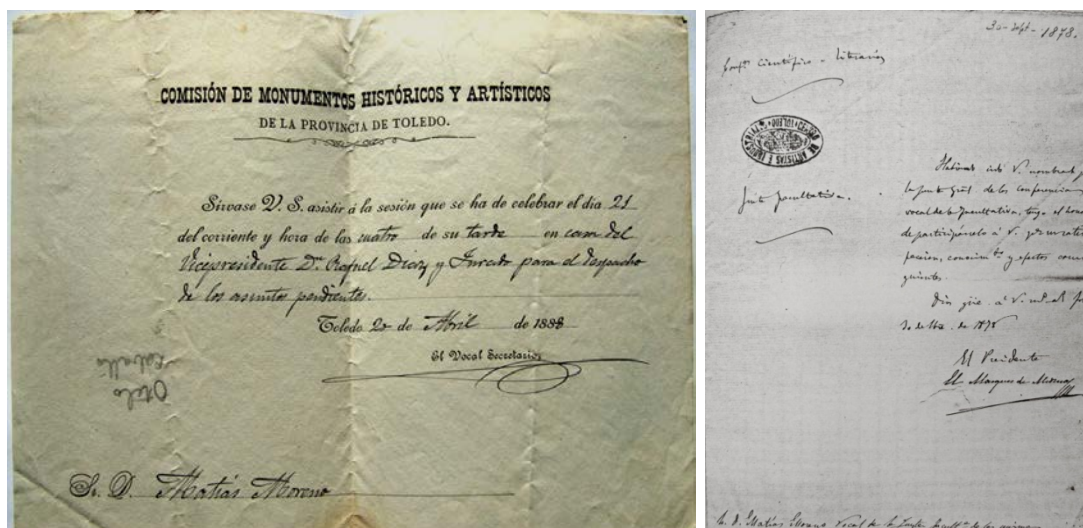 COMISIÓN DE MONUMENTOS HISTÓRICOS Y ARTÍSTICOS
DE LA PROVINCIA DE TOLEDO.
Sírvase V. S. asistir á la sesión que se ha de celebrar el dia 21
del corriente y hora de las cuatro de su tarde en casa del
Vicepresidente Dn. Rafael Diaz y Jurado para el despacho
de los asuntos pendientes.
Toledo 20 de Abril de 1888
El Vocal Secretario,
Otelo
Sr. D. Matías Moreno
30 - Sept - 1878.
Científico - Literarios
Junta facultativa.
Habiendo sido V. nombrado
la Junta Gral. de las conferencias
vocal de la facultativa, tengo el honor
de participárselo á V. para su satis
y efectos consi
guientes.
Dios gue. á V. m. a.
de 1878
El Presidente
El Marques de Medina